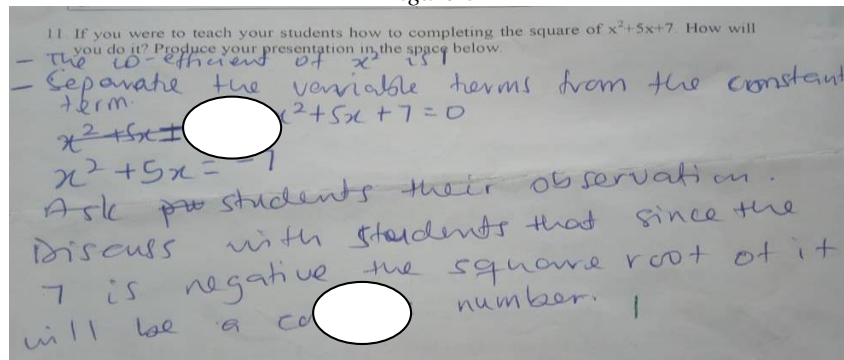 11. If you were to teach your students how to completing the square of x²+5x+7. How will
you do it? Produce your presentation in the space below.
- The co-efficient of x² is 1
- Separate the variable terms from the constant
term.
x² + 5x ± x² + 5x + 7 = 0
x² + 5x = -7
Ask students their observation.
Discuss with students that since the
7 is negative the square root of it
will be a number. 1